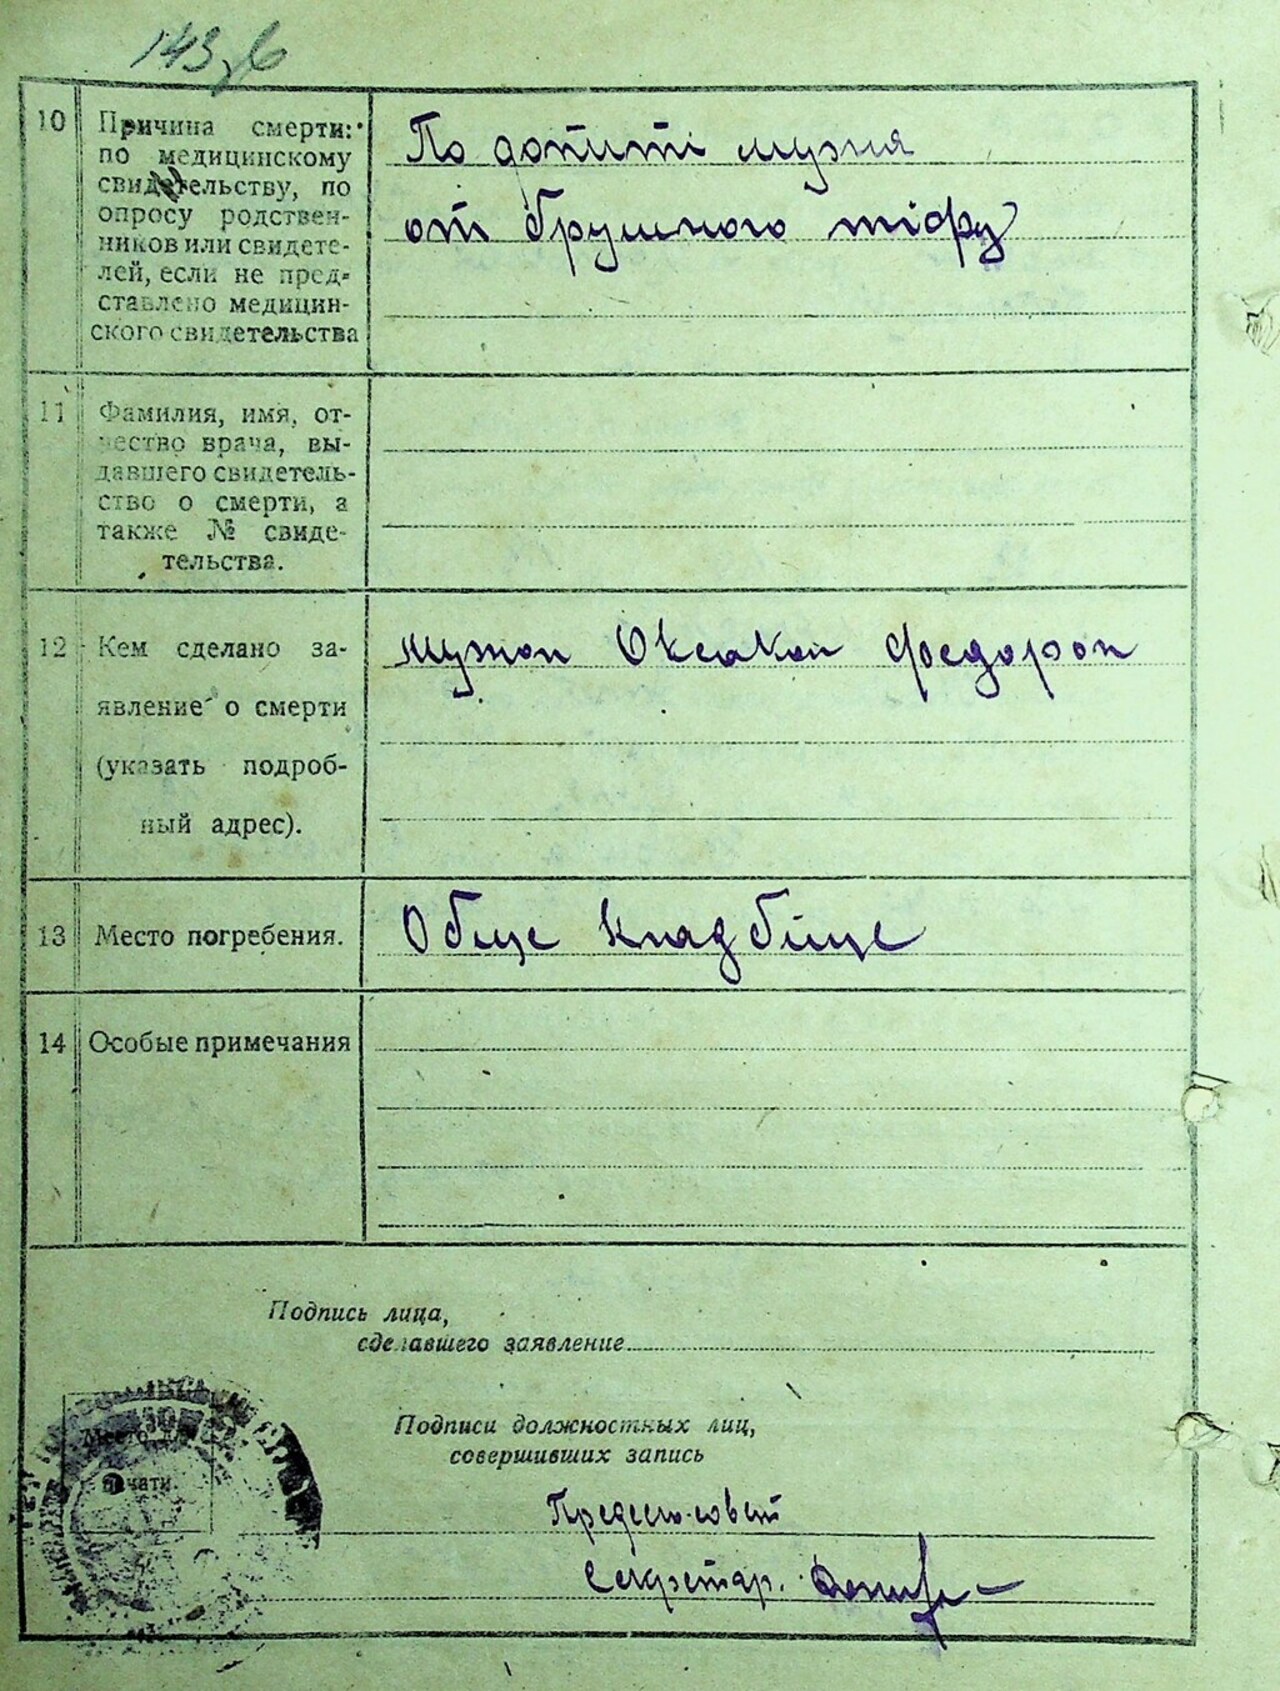 143
10
Причина смерти:
по медицинскому
свидетельству, по
опросу родствен-
ников или свидете-
лей, если не пред-
ставлено медицин-
ского свидетельства
По допиті мужя
от брушного тіфу
11
Фамилия, имя, от-
чество врача, вы-
давшего свидетель-
ство о смерти, а
также № свиде-
тельства.
12
Кем сделано за-
явление о смерти
(указать подроб-
ный адрес).
мужом Федором
13
Место погребения.
Обще кладбіще
14
Особые примечания
Подпись лица,
сделавшего заявление
Подписи должностных лиц,
совершивших запись
Место для
печати
Секретар.